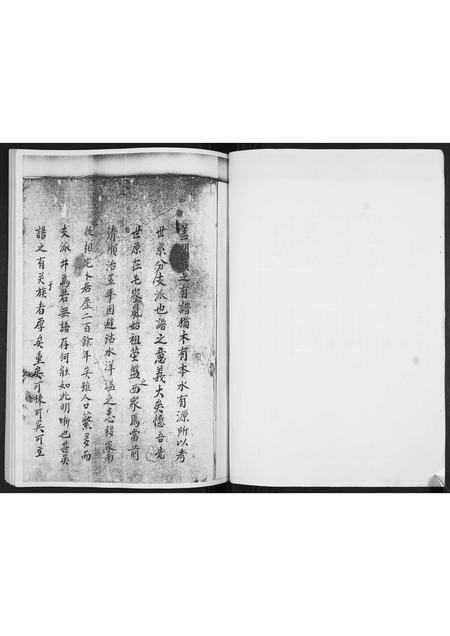 蓋聞譜之有譜猶木有本水有源所以考
世系分支派也譜之意義大矣憶吾先
世原在毛家嵐始祖塋盤之西家焉當前
清順治五年因避沽水洋溢之患移家南
徙相宅卜居歷二百餘年矣雖人口繁多而
支派井焉若無譜存何能如此明晰也甚矣
譜之有关于族者厚矣重矣可